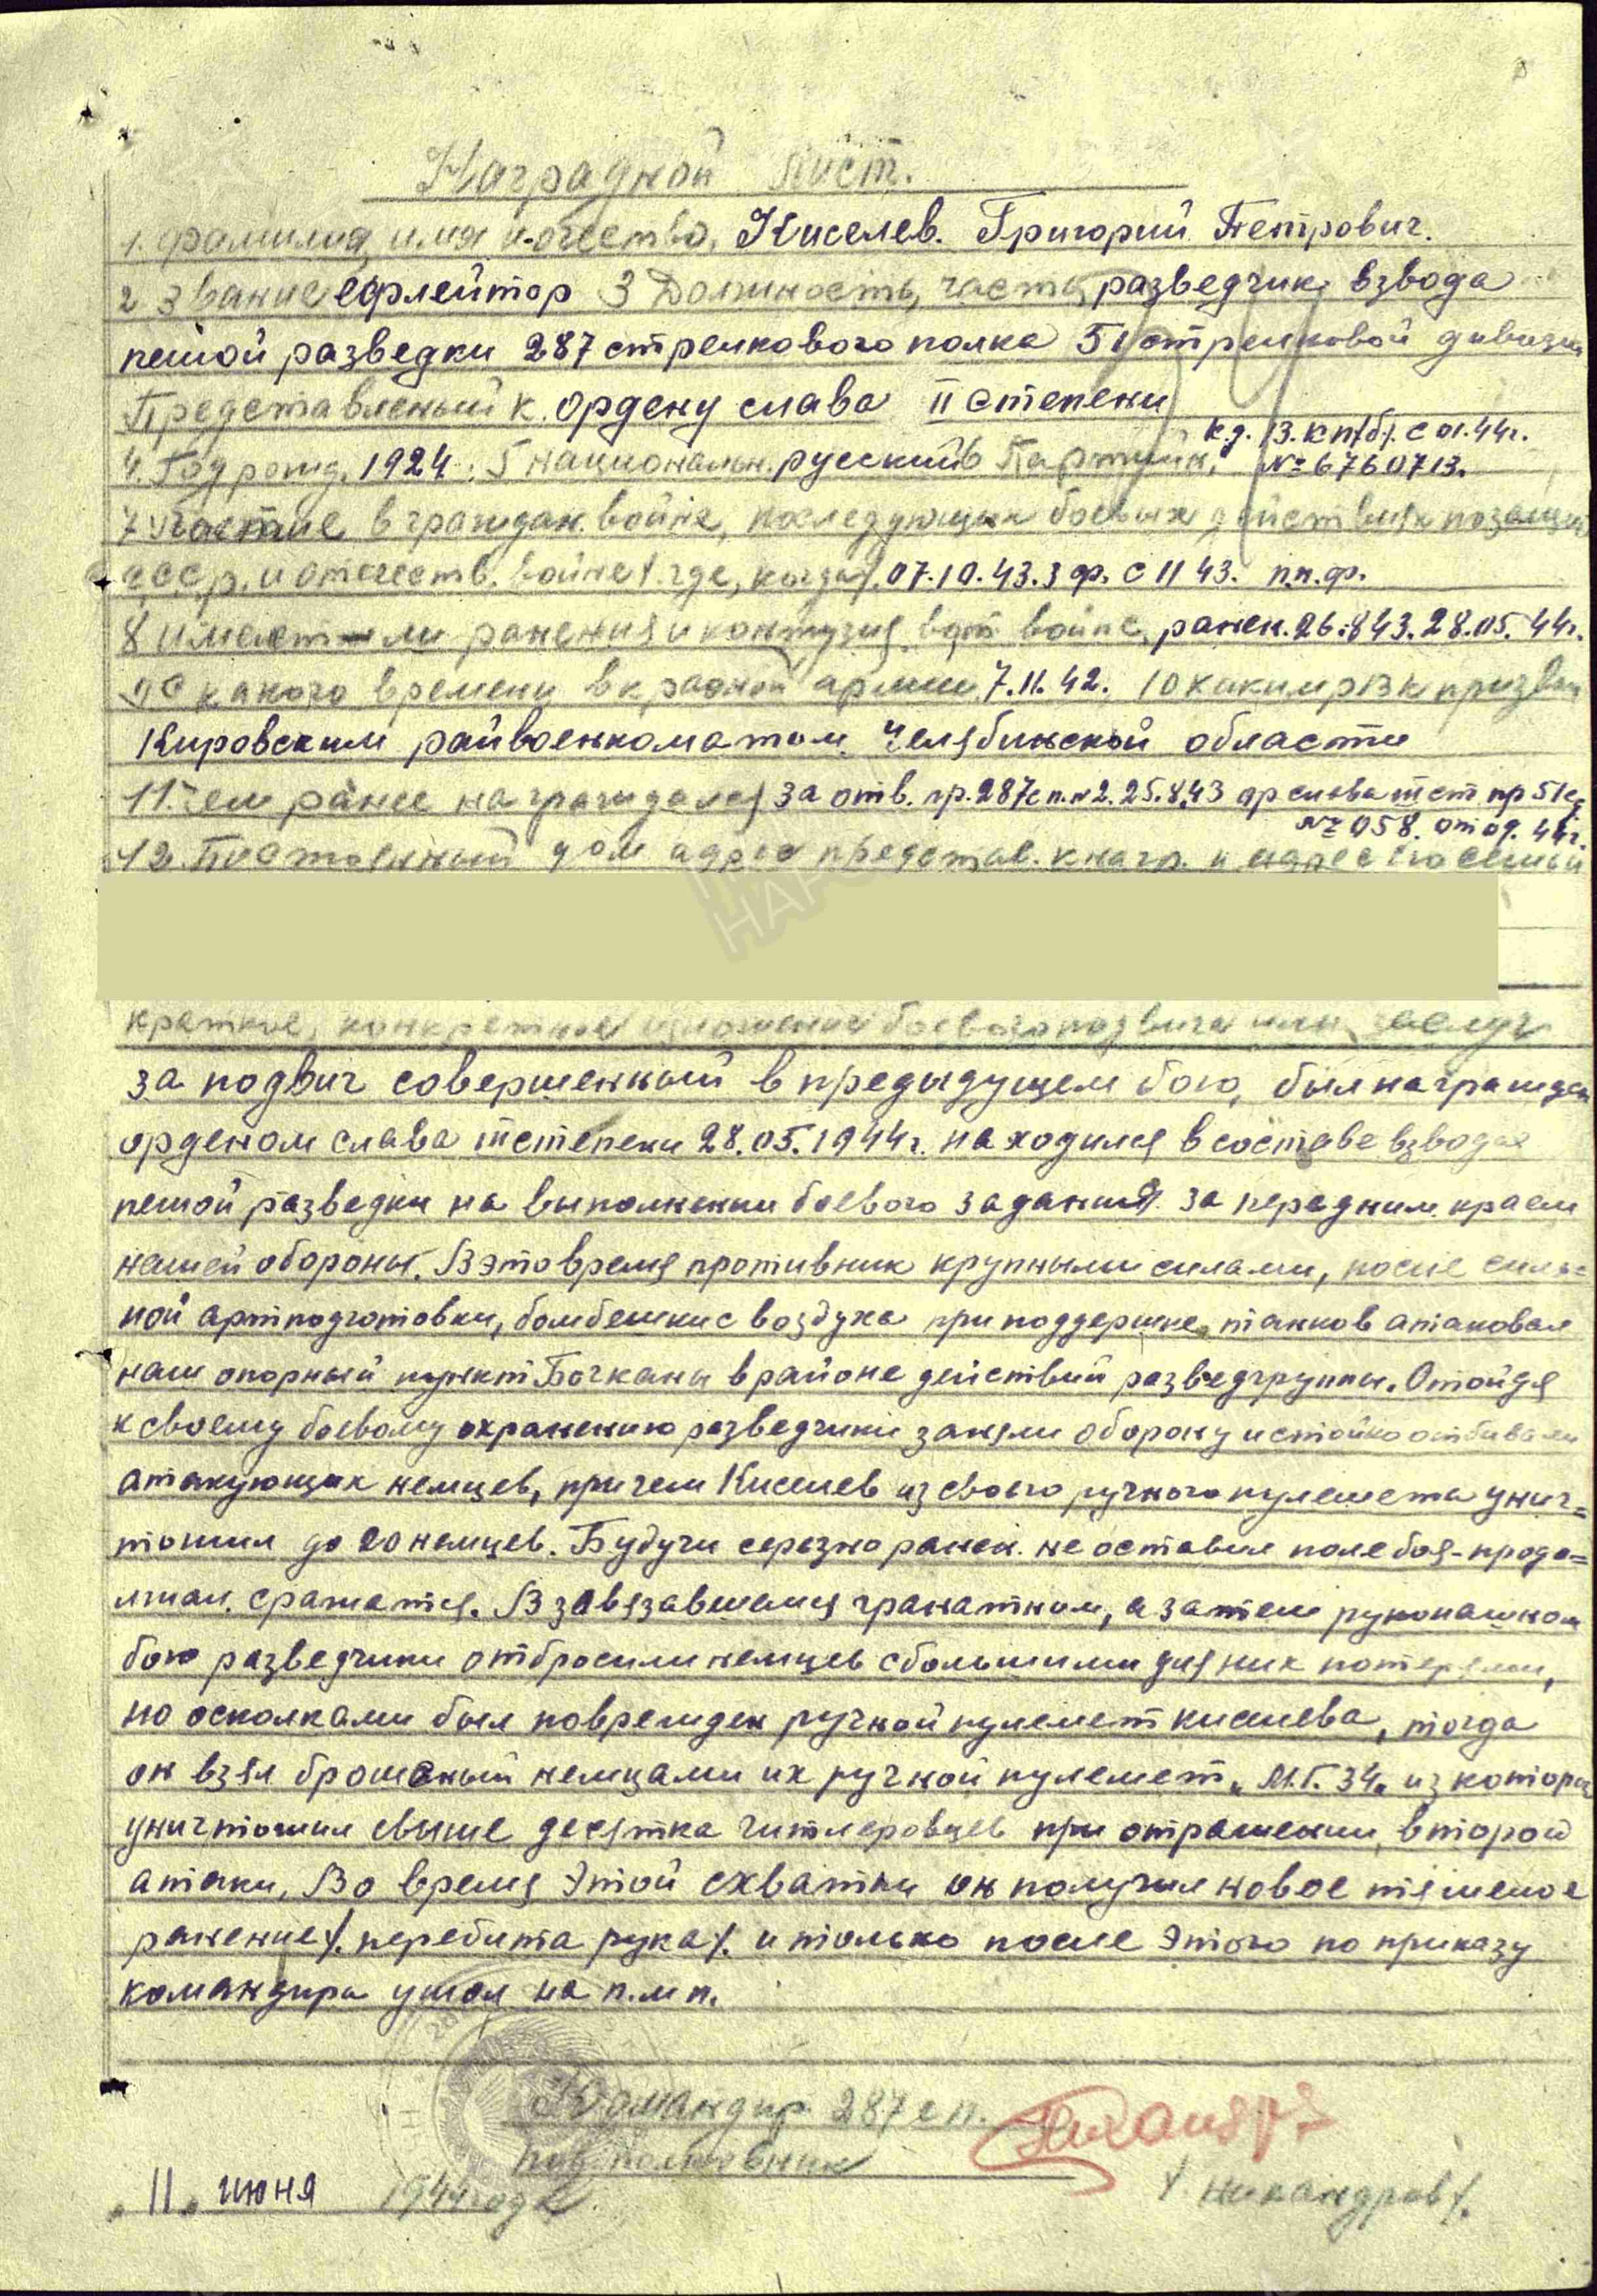 Наградной лист.
1. Фамилия, имя и отчество, Киселев. Григорий Петрович.
2 Звание ефрейтор 3 Должность, часть разведчик взвода
пешой разведки 287 стрелкового полка 51 стрелковой дивизии
Представленый к. ордену слава II степени
к.д. В.К.П/б/. с 01.44г.
4. Год рожд. 1924. 5 национальн. русский 6 Партийн. № 6760713.
7 участие в граждан. войне, последующих боевых действиях по защите
ССС.р. и отечеств. войне /. где, когда /. 07.10.43. 3 ф. с 11 43. п.п.ф.
8 имеет ли ранения и контузия в от войне, ранен. 26.843. 28.05.44г.
9 С какого времени в красной армии 7.11.42. 10 каким рвк призван
Кировским райвоенкоматом. Челябинской области
11. чем ранее награждался за отв. пр. 287с п. № 2. 25.8.43 ор слава III ст пр 51с
№ 058. от 44г.
12. Постоянный дом адрес представ. к нагр. и адрес его семьи
НАРО
краткое, конкретное изложение боевого подвига или заслуг
за подвиг совершенный в предыдущем бою, был награжден
орденом слава III степени 28.05.1944г. находился в составе взвода
пешой разведки на выполнении боевого задания за передним краем
нашей обороны. В это время противник крупными силами, после силь=
ной артподготовки, бомбежки с воздуха при поддержке танков атаковал
наш опорный пункт Бочканы в районе действий разведгруппы. Отойдя
к своему боевому охранению разведчики заняли оборону и стойко отбивали
атакующих немцев, причем Киселев из своего ручного пулемета унич=
тожил до 20 немцев. Будучи серьезно ранен. не оставил поле боя-продо=
лжал. сражатся. В завязавшемся гранатном, а затем рукопашном
бою разведчики отбросили немцев с большими для них потерями,
но осколками был поврежден ручной пулемет киселева, тогда
он взял брошеный немцами их ручной пулемет „М.Г. 34„ из которого
уничтожил свыше десятка гитлеровцев при отражении второй
атаки. Во время этой схватки он получил новое тяжелое
ранение /. перебита рука /. и только после этого по приказу
командира ушол на п.м п.
Командир 287 с п.
подполковник
„ 11 „ июня 1944 года. /. никандров /.